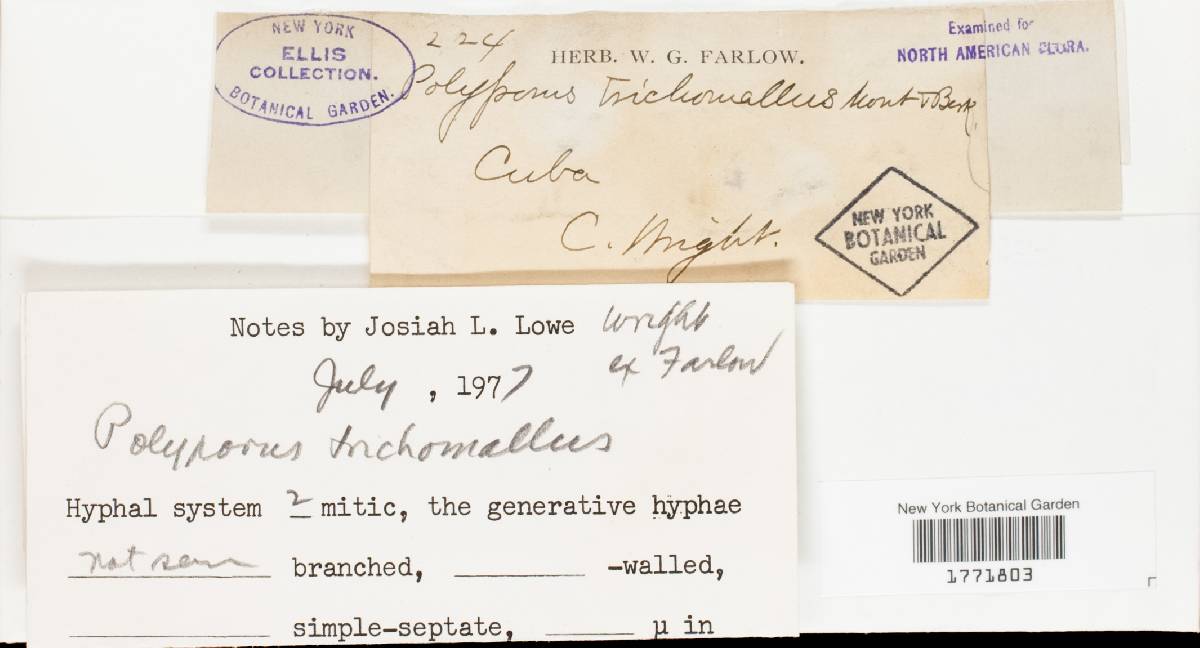 NEW YORK
ELLIS
COLLECTION.
BOTANICAL GARDEN.
224
HERB. W. G. FARLOW.
Examined for
NORTH AMERICAN FLORA.
Polyporus trichomallus Mont & Berk.
Cuba
C. Wright.
NEW YORK
BOTANICAL
GARDEN
Notes by Josiah L. Lowe Wright
ex Farlow
July, 1977
Polyporus trichomallus
Hyphal system 2 mitic, the generative hyphae
not seen branched, -walled,
simple-septate, µ in
New York Botanical Garden
1771803